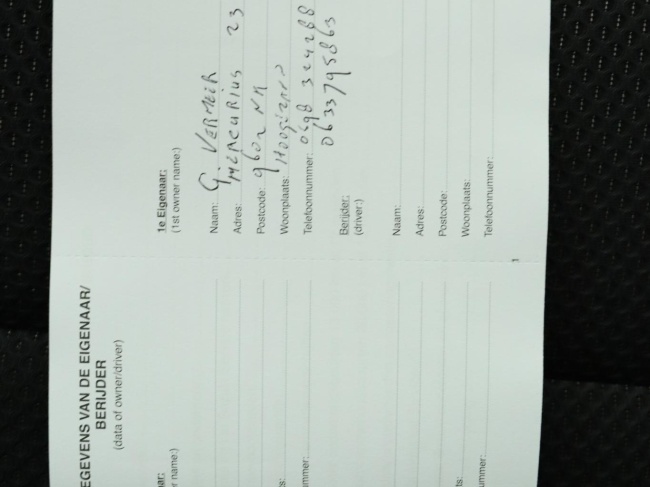 EGEVENS VAN DE EIGENAAR/
BERIJDER
(data of owner/driver)
1e Eigenaar:
(1st owner name:)
Naam: G. VERMEIR
Adres: MERCURIUS 23
Postcode: 9602 NM
Woonplaats: HOOGEZAND
Telefoonnummer: 0598 324288
0633795863
Berijder:
(driver:)
Naam:
Adres:
Postcode:
Woonplaats:
Telefoonnummer:
1
ar:
r name:)
s:
mmer:
ts:
ummer: